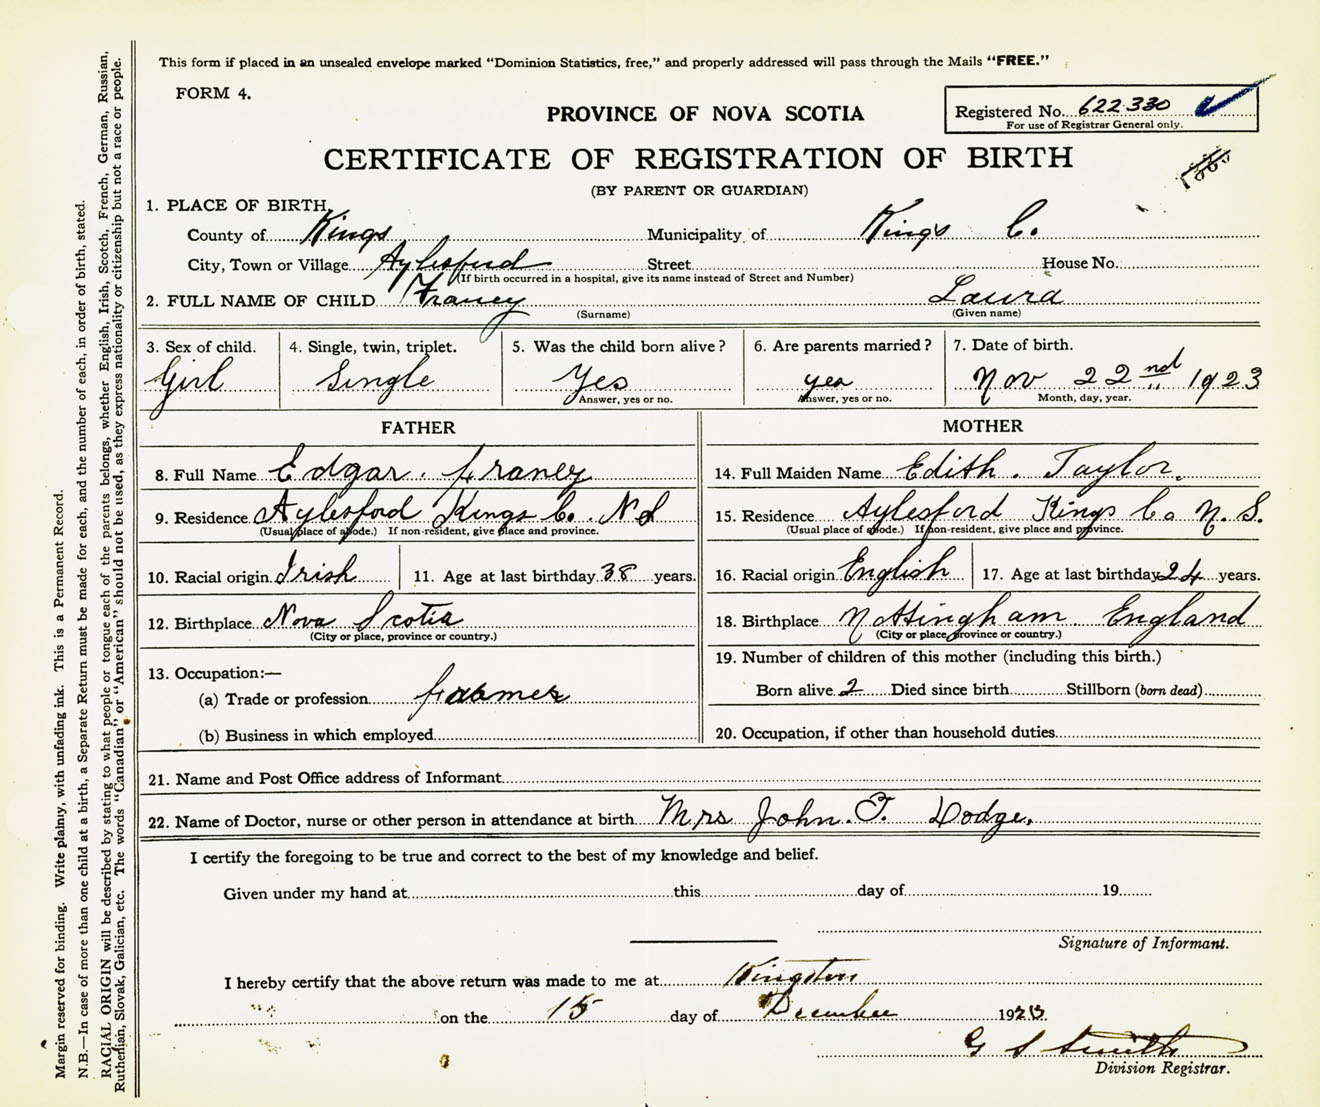 This form if placed in an unsealed envelope marked "Dominion Statistics, free," and properly addressed will pass through the Mails "FREE."
FORM 4.
PROVINCE OF NOVA SCOTIA
Registered No. 622330
For use of Registrar General only.
CERTIFICATE OF REGISTRATION OF BIRTH
(BY PARENT OR GUARDIAN)
1. PLACE OF BIRTH.
County of Kings Municipality of Kings Co.
City, Town or Village Aylesford Street House No.
(If birth occurred in a hospital, give its name instead of Street and Number)
2. FULL NAME OF CHILD Franey Laura
(Surname) (Given name)
3. Sex of child. 4. Single, twin, triplet. 5. Was the child born alive? 6. Are parents married? 7. Date of birth.
Girl Single Yes yes Nov 22nd 1923
Answer, yes or no. Answer, yes or no. Month, day, year.
FATHER MOTHER
8. Full Name Edgar. Franey 14. Full Maiden Name Edith. Taylor.
9. Residence Aylesford Kings Co. N S 15. Residence Aylesford Kings Co N. S.
(Usual place of abode.) If non-resident, give place and province. (Usual place of abode.) If non-resident, give place and province.
10. Racial origin Irish 11. Age at last birthday 38 years. 16. Racial origin English 17. Age at last birthday 24 years.
12. Birthplace Nova Scotia 18. Birthplace Nottingham England
(City or place, province or country.) (City or place, province or country.)
13. Occupation:— 19. Number of children of this mother (including this birth.)
(a) Trade or profession farmer Born alive 2 Died since birth Stillborn (born dead)
(b) Business in which employed 20. Occupation, if other than household duties
21. Name and Post Office address of Informant
22. Name of Doctor, nurse or other person in attendance at birth Mrs John. F. Dodge.
I certify the foregoing to be true and correct to the best of my knowledge and belief.
Given under my hand at this day of 19
Signature of Informant.
I hereby certify that the above return was made to me at Kingston
on the 15 day of December 1923
G S Smith
Division Registrar.
Margin reserved for binding. Write plainly, with unfading ink. This is a Permanent Record.
N.B.—In case of more than one child at a birth, a Separate Return must be made for each, and the number of each, in order of birth, stated.
RACIAL ORIGIN will be described by stating to what people or tongue each of the parents belongs, whether English, Irish, Scotch, French, German, Russian,
Ruthenian, Slovak, Galician, etc. The words "Canadian" or "American" should not be used, as they express nationality or citizenship but not a race or people.